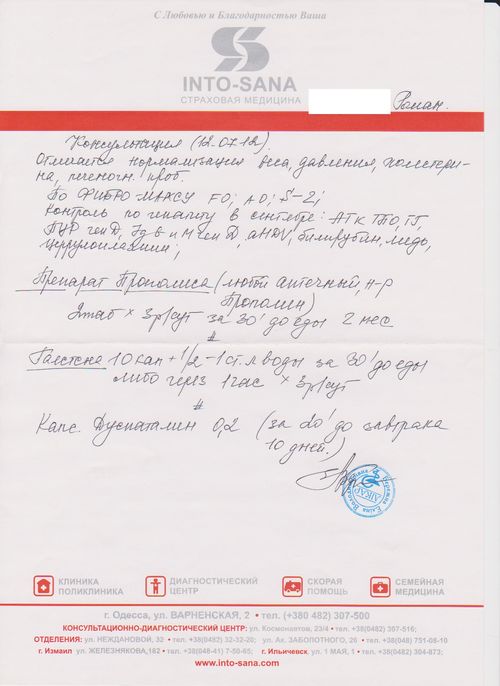 С Любовью и Благодарностью Ваша
INTO-SANA
СТРАХОВАЯ МЕДИЦИНА
Роман.
Консультация (12.07.12).
Отмечается нормализация веса, давления, холестери-
на, печеночн. проб.
По ФИБРОМАКСУ F0; A0; S-2;
Контроль по гепатиту в сентябре: АТ к ТПО, ТГ,
ПЦР ген D, Ig G и M ген D, aHDV, билирубин, медь,
церрулоплазмин;
Препарат Прополиса (любой аптечный, н-р
Прополин)
2таб × 3р/сут за 30' до еды 2 мес.
#
Галстена 10 кап + 1/2 - 1 ст. л воды за 30' до еды
либо через 1 час × 3р/сут
#
Капс. Дуспаталин 0,2 (за 20' до завтрака
10 дней.)
ЛІКАР
КЛИНИКА
ПОЛИКЛИНИКА
ДИАГНОСТИЧЕСКИЙ
ЦЕНТР
СКОРАЯ
ПОМОЩЬ
СЕМЕЙНАЯ
МЕДИЦИНА
г. Одесса, ул. ВАРНЕНСКАЯ, 2 • тел. (+380 482) 307-500
КОНСУЛЬТАЦИОННО-ДИАГНОСТИЧЕСКИЙ ЦЕНТР: ул. Космонавтов, 23/4 • тел. +38(0482) 307-516;
ОТДЕЛЕНИЯ: ул. НЕЖДАНОВОЙ, 32 • тел. +38(0482) 32-32-20; ул. Ак. ЗАБОЛОТНОГО, 26 • тел. +38(048) 751-08-10
г. Измаил ул. ЖЕЛЕЗНЯКОВА,182 • тел. +38(048-41) 7-50-65; г. Ильичевск ул. 1 МАЯ, 1 • тел. +38(0482) 304-873;
www.into-sana.com